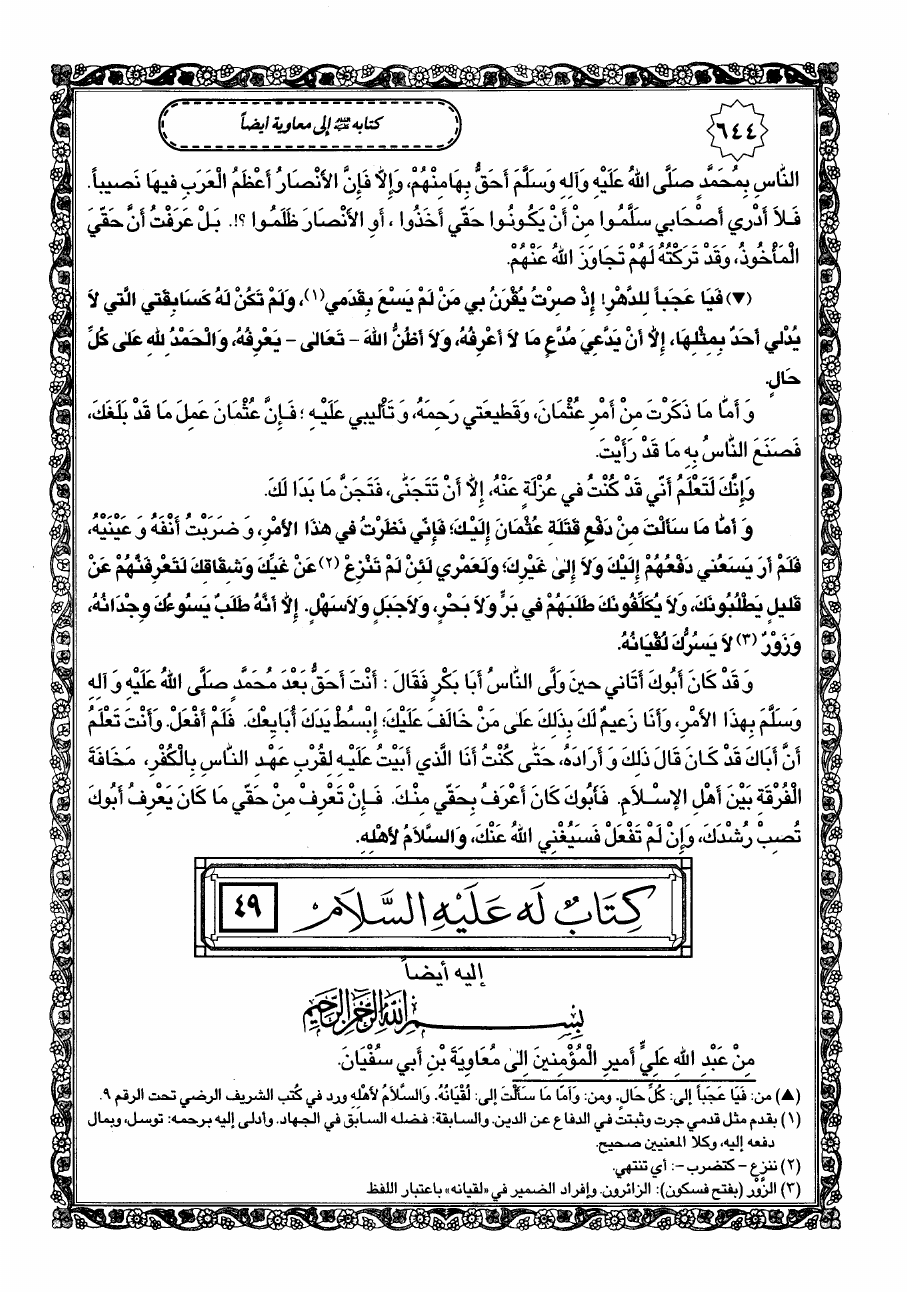 ٦٤٤
كتابه عليه السلام إلى معاوية أيضاً
النَّاسِ بِمُحَمَّدٍ صَلَّى اللهُ عَلَيْهِ وَآلِهِ وَسَلَّمَ أَحَقُّ بِهَامِنْهُمْ، وَإِلاَّ فَإِنَّ الأَنْصَارُ أَعْظَمُ الْعَرَبِ فيهَا نَصيباً.
فَلاَ أَدْرِي أَصْحَابي سَلَّمُوا مِنْ أَنْ يَكُونُوا حَقّي أَخَذُوا ، أَوِ الأَنْصَارَ ظَلَمُوا ؟!. بَلْ عَرَفْتُ أَنَّ حَقّيَ
الْمَأْخُوذُ، وَقَدْ تَرَكْتُهُ لَهُمْ تَجَاوَزَ اللهُ عَنْهُمْ.
(▼) فَيَا عَجَباً لِلدَّهْرِ! إِذْ صِرْتُ يُقْرَنُ بي مَنْ لَمْ يَسْعَ بِقَدَمي(١)، وَلَمْ تَكُنْ لَهُ كَسَابِقَتي الَّتي لاَ
يُدْلي أَحَدٌ بِمِثْلِهَا، إِلاَّ أَنْ يَدَّعِيَ مُدَّعٍ مَا لاَ أَعْرِفُهُ، وَلاَ أَظُنُّ اللهَ - تَعَالى - يَعْرِفُهُ، وَالْحَمْدُ لِلهِ عَلى كُلِّ
حَالٍ.
وَ أَمَّا مَا ذَكَرْتَ مِنْ أَمْرِ عُثْمَانَ، وَقَطيعَتي رَحِمَهُ، وَ تَأْليبي عَلَيْهِ ؛ فَإِنَّ عُثْمَانَ عَمِلَ مَا قَدْ بَلَغَكَ،
فَصَنَعَ النَّاسُ بِهِ مَا قَدْ رَأَيْتَ.
وَإِنَّكَ لَتَعْلَمُ أَنّي قَدْ كُنْتُ في عُزْلَةٍ عَنْهُ، إِلاَّ أَنْ تَتَجَنّى، فَتَجَنَّ مَا بَدَا لَكَ.
وَ أَمَّا مَا سَأَلْتَ مِنْ دَفْعِ قَتَلَةِ عُثْمَانَ إِلَيْكَ؛ فَإِنّي نَظَرْتُ في هذَا الأَمْرِ، وَ ضَرَبْتُ أَنْفَهُ وَ عَيْنَيْهُ،
فَلَمْ أَرَ يَسَعُني دَفْعُهُمْ إِلَيْكَ وَلاَ إِلى غَيْرِكَ؛ وَلَعَمْري لَئِنْ لَمْ تَنْزِعْ (٢)عَنْ غَيِّكَ وَشِقَاقِكَ لَتَعْرِفَنَّهُمْ عَنْ
قَليلٍ يَطْلُبُونَكَ، وَلاَ يُكَلِّفُونَكَ طَلَبَهُمْ في بَرٍّ وَلاَ بَحْرٍ، وَلاَجَبَلٍ وَلاَسَهْلٍ. إِلاَّ أَنَّهُ طَلَبٌ يَسُوءُكَ وِجْدَانُهُ،
وَزَوْرٌ (٣) لاَ يَسُرُّكَ لُقْيَانُهُ.
وَ قَدْ كَانَ أَبُوكَ أَتَاني حينَ وَلَّى النَّاسُ أَبَا بَكْرٍ فَقَالَ : أَنْتَ أَحَقُّ بَعْدَ مُحَمَّدٍ صَلَّى اللهُ عَلَيْهِ وَ آلِهِ
وَسَلَّمَ بِهذَا الأَمْرِ، وَأَنَا زَعيمٌ لَكَ بِذلِكَ عَلى مَنْ خَالَفَ عَلَيْكَ؛ اِبْسُطْ يَدَكَ أُبَايِعْكَ. فَلَمْ أَفْعَلْ. وَأَنْتَ تَعْلَمُ
أَنَّ أَبَاكَ قَدْ كَانَ قَالَ ذلِكَ وَ أَرَادَهُ، حَتّى كُنْتُ أَنَا الَّذي أَبَيْتُ عَلَيْهِ لِقُرْبِ عَهْدِ النَّاسِ بِالْكُفْرِ، مَخَافَةَ
الْفُرْقَةِ بَيْنَ أَهْلِ الإِسْلاَمِ. فَأَبُوكَ كَانَ أَعْرَفَ بِحَقّي مِنْكَ. فَإِنْ تَعْرِفْ مِنْ حَقّي مَا كَانَ يَعْرِفُ أَبُوكَ
تُصِبْ رُشْدَكَ، وَإِنْ لَمْ تَفْعَلْ فَسَيُغْنِي اللهُ عَنْكَ، وَالسَّلاَمُ لأَهْلِهِ.
كِتَابٌ لَه عَلَيْهِ السَّلَام ٤٩
إليه أيضاً
بِسْمِ اللهِ الرَّحْمنِ الرَّحيمِ
مِنْ عَبْدِ اللهِ عَلِيٍّ أَميرِ الْمُؤْمِنينَ إِلى مُعَاوِيَةَ بْنِ أَبي سُفْيَانَ.
(▲) من: فَيَا عَجَباً إلى: كُلِّ حَالٍ. ومن: وَأَمَّا مَا سَأَلْتَ إلى: لُقْيَانُهُ. وَالسَّلاَمُ لأَهْلِهِ ورد في كُتب الشريف الرضي تحت الرقم ٩.
(١) بقدم مثل قدمي جرت وثبتت في الدفاع عن الدين. والسابقة: فضله السابق في الجهاد. وأدلى إليه برحمه: توسل، وبمال
دفعه إليه، وكلا المعنيين صحيح.
(٢) تنزع - كتضرب -: أي تنتهي.
(٣) الزَّوْر (بفتح فسكون): الزائرون. وإفراد الضمير في «لقيانه» باعتبار اللفظ